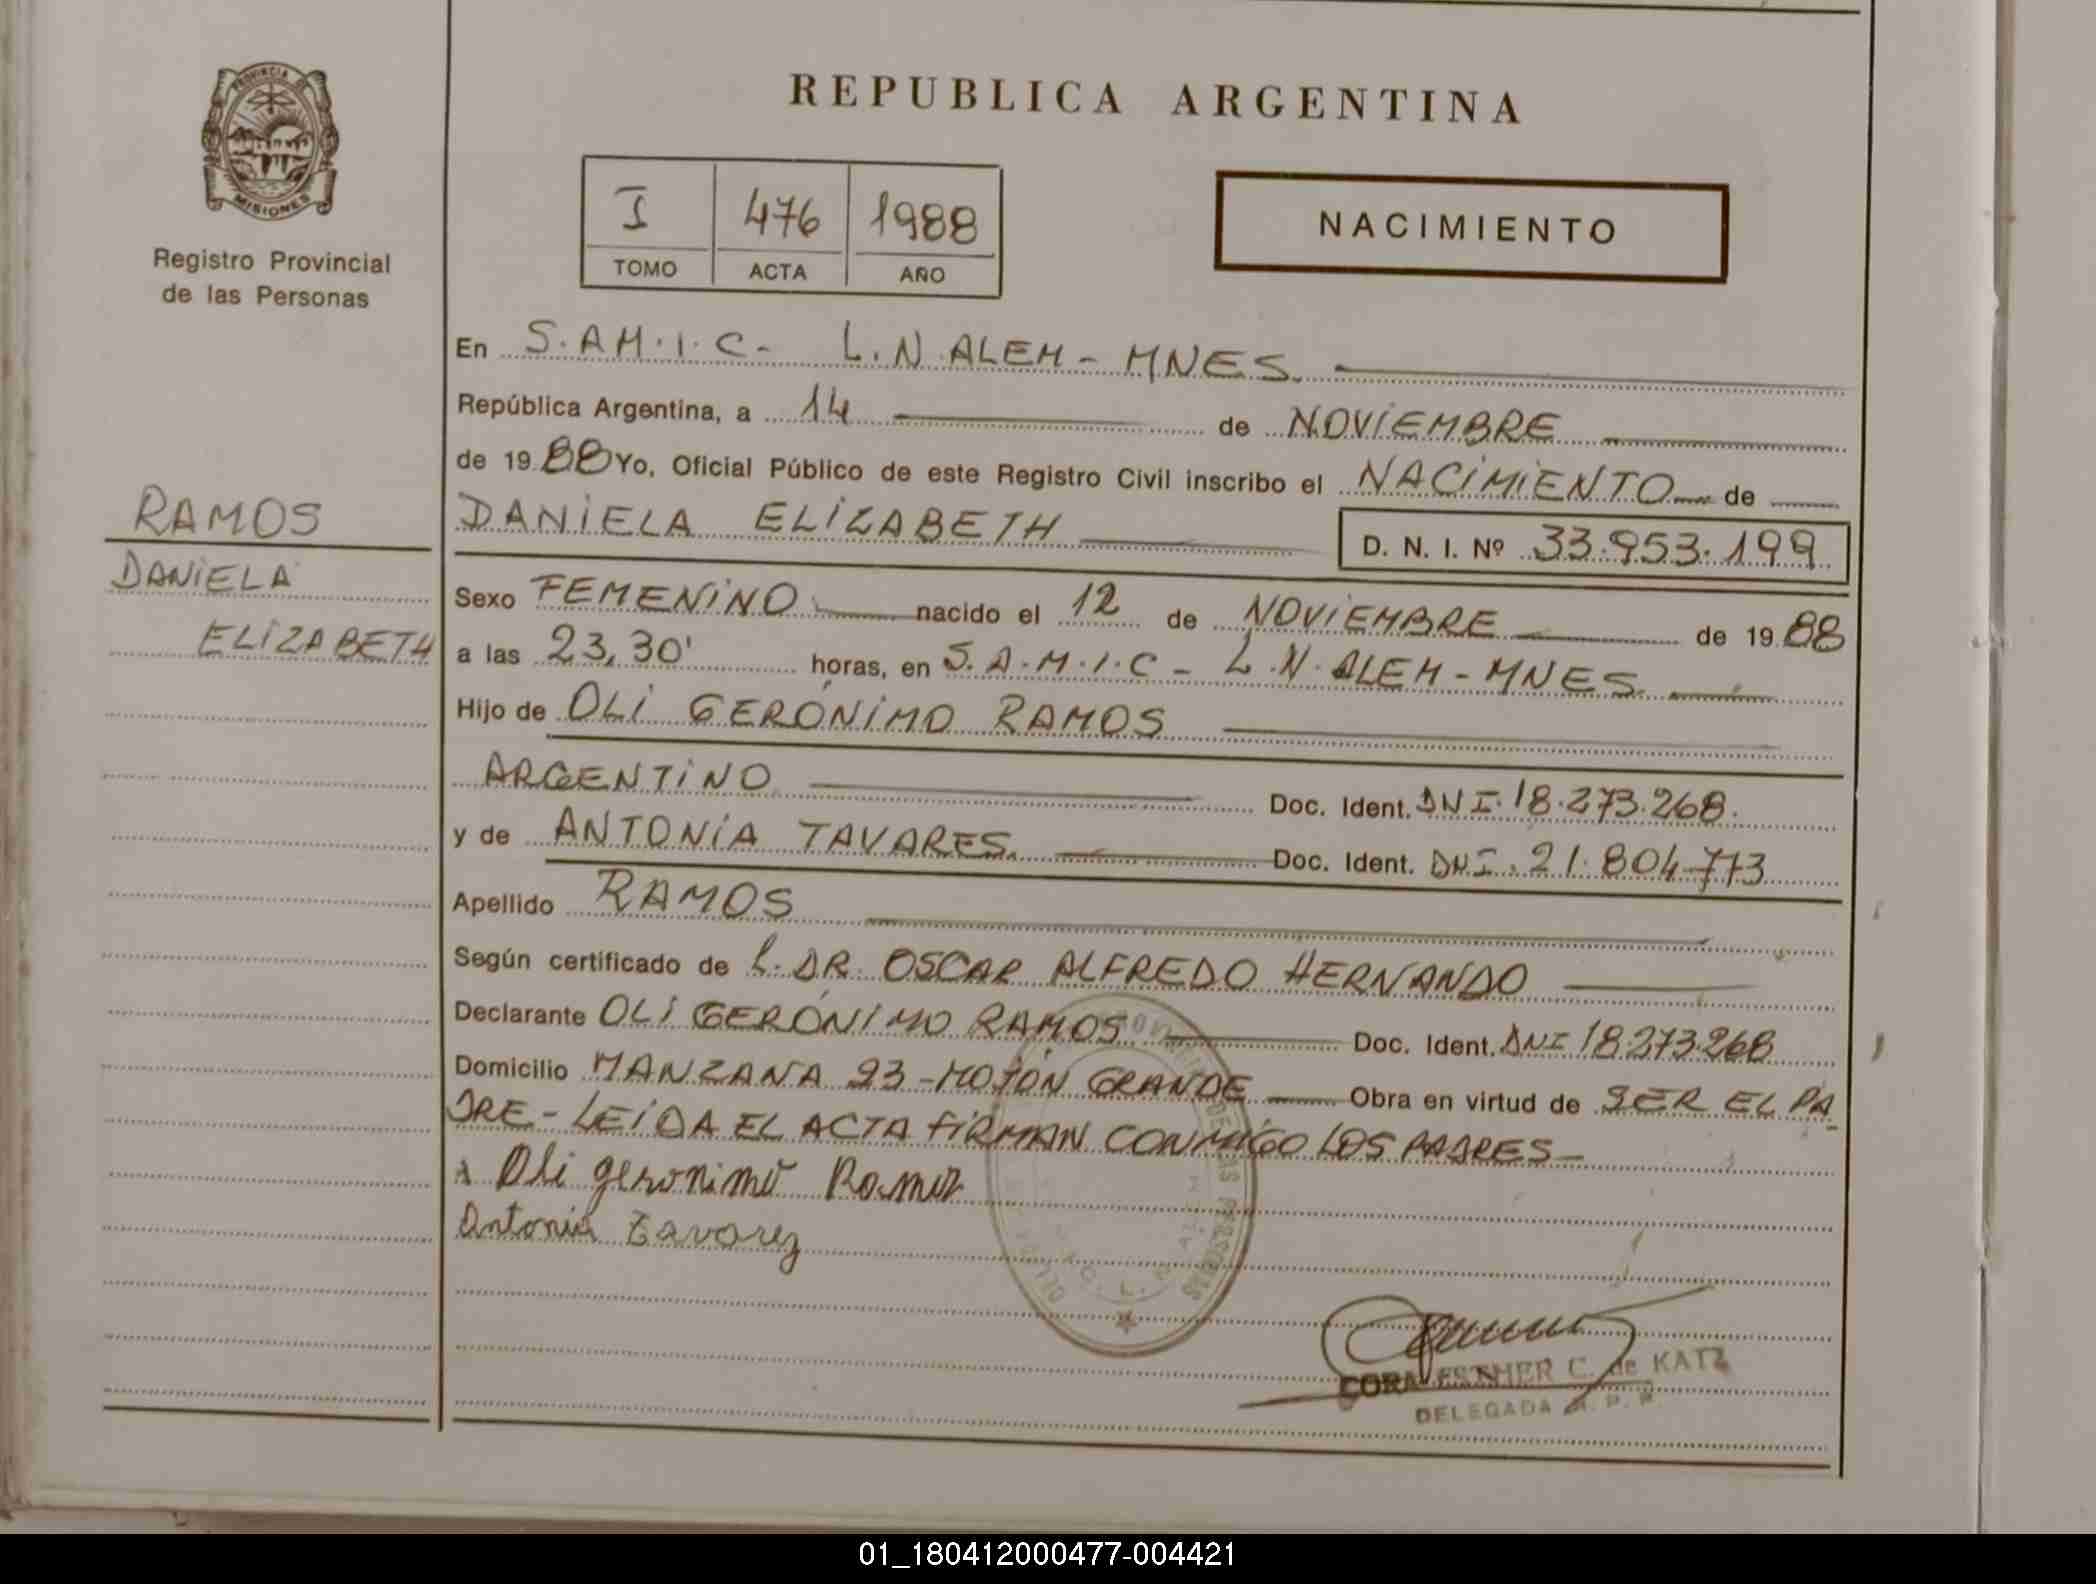 REPUBLICA ARGENTINA
PROVINCIA DE
MISIONES
Registro Provincial
de las Personas
I 476 1988
TOMO ACTA AÑO
NACIMIENTO
En S.AM.I.C- L.N.ALEM - MNES.
República Argentina, a 14 de NOVIEMBRE
de 1988 Yo, Oficial Público de este Registro Civil inscribo el NACIMIENTO de
DANIELA ELIZABETH D. N. I. Nº 33.953.199
RAMOS
DANIELA
ELIZABETH
Sexo FEMENINO nacido el 12 de NOVIEMBRE de 1988
a las 23,30' horas, en S.A.M.I.C - L.N.ALEM - MNES
Hijo de OLI GERÓNIMO RAMOS
ARGENTINO Doc. Ident. DNI.18.273.268.
y de ANTONIA TAVARES. Doc. Ident. DNI.21.804.773
Apellido RAMOS
Según certificado de L. DR. OSCAR ALFREDO HERNANDO
Declarante OLI GERÓNIMO RAMOS Doc. Ident. DNI 18.273.268
Domicilio MANZANA 23 - MOJÓN GRANDE Obra en virtud de SER EL PA
DRE - LEIDA EL ACTA FIRMAN CONMIGO LOS PADRES
Oli geronimo Ramos
Antonia Tavarez
DE LAS PERSONAS
CORA ESTHER C. de KATZ
DELEGADA R. P. P.
01_180412000477-004421